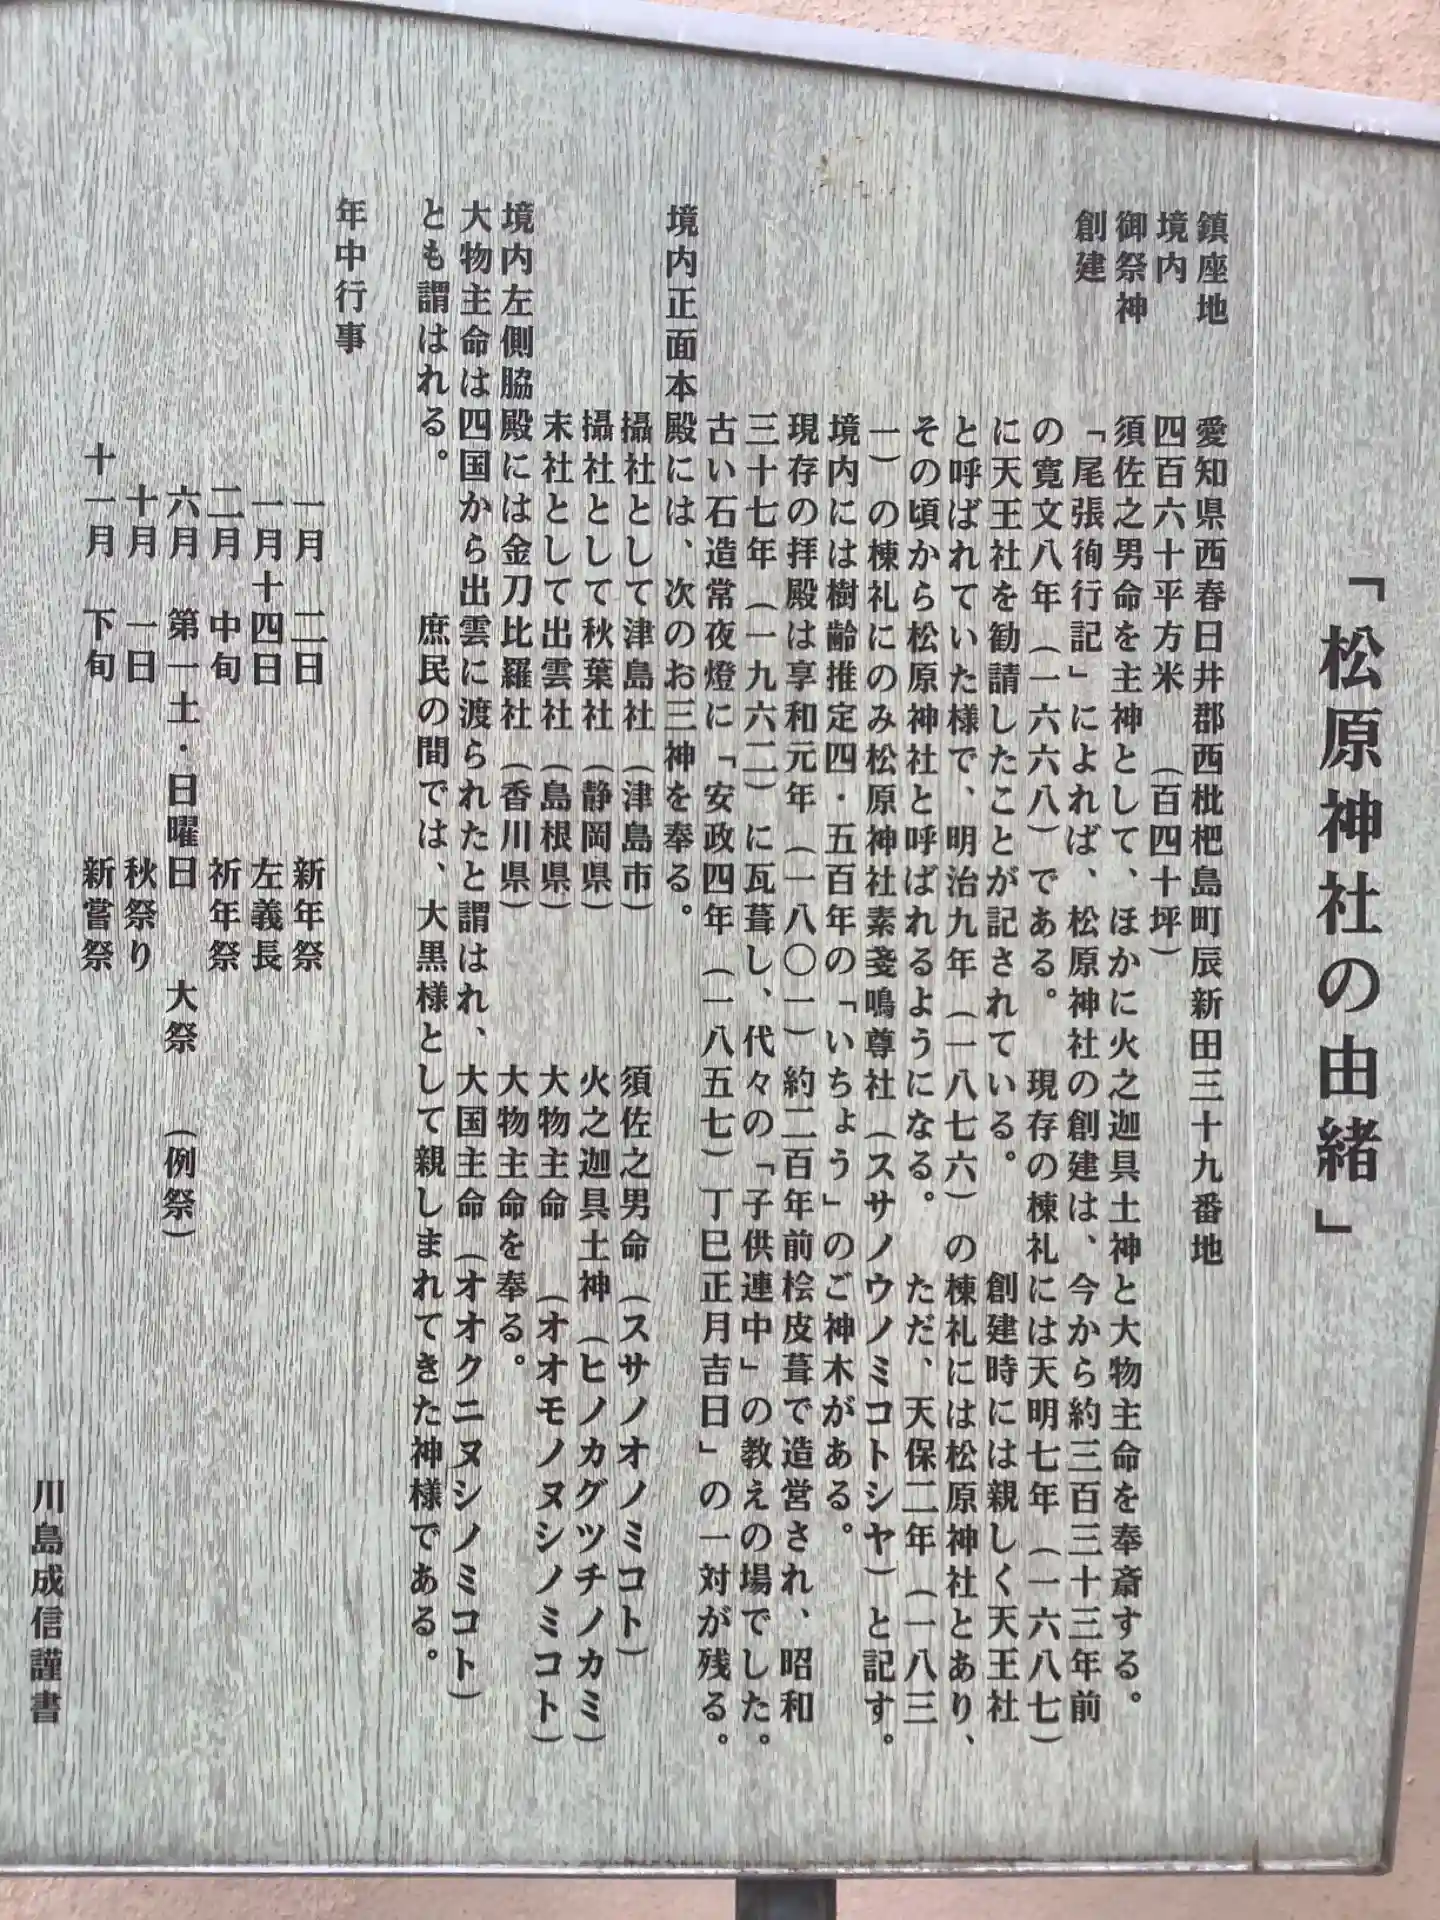 「松原神社の由緒」
鎮座地　愛知県西春日井郡西枇杷島町辰新田三十九番地
境内　四百六十平方米　（百四十坪）
御祭神　須佐之男命を主神として、ほかに火之迦具土神と大物主命を奉斎する。
創建　「尾張徇行記」によれば、松原神社の創建は、今から約三百三十三年前
の寛文八年（一六六八）である。　現存の棟礼には天明七年（一六八七）
に天王社を勧請したことが記されている。　　創建時には親しく天王社
と呼ばれていた様で、明治九年（一八七六）の棟礼には松原神社とあり、
その頃から松原神社と呼ばれるようになる。　ただ、天保二年（一八三
一）の棟礼にのみ松原神社素戔鳴尊社（スサノウノミコトシヤ）と記す。
境内には樹齢推定四・五百年の「いちょう」のご神木がある。
現存の拝殿は享和元年（一八〇一）約二百年前桧皮葺で造営され、昭和
三十七年（一九六二）に瓦葺し、代々の「子供連中」の教えの場でした。
古い石造常夜燈に「安政四年（一八五七）丁巳正月吉日」の一対が残る。
境内正面本殿には、次のお三神を奉る。
攝社として津島社（津島市）　須佐之男命（スサノオノミコト）
攝社として秋葉社（静岡県）　火之迦具土神（ヒノカグツチノカミ）
末社として出雲社（島根県）　大物主命　（オオモノヌシノミコト）
境内左側脇殿には金刀比羅社（香川県）　大物主命を奉る。
大物主命は四国から出雲に渡られたと謂はれ、大国主命（オオクニヌシノミコト）
とも謂はれる。　庶民の間では、大黒様として親しまれてきた神様である。
年中行事
一月　二日　新年祭
一月十四日　左義長
二月　中旬　祈年祭
六月　第一土・日曜日　大祭　（例祭）
十月　一日　秋祭り
十一月　下旬　新嘗祭
川島成信謹書